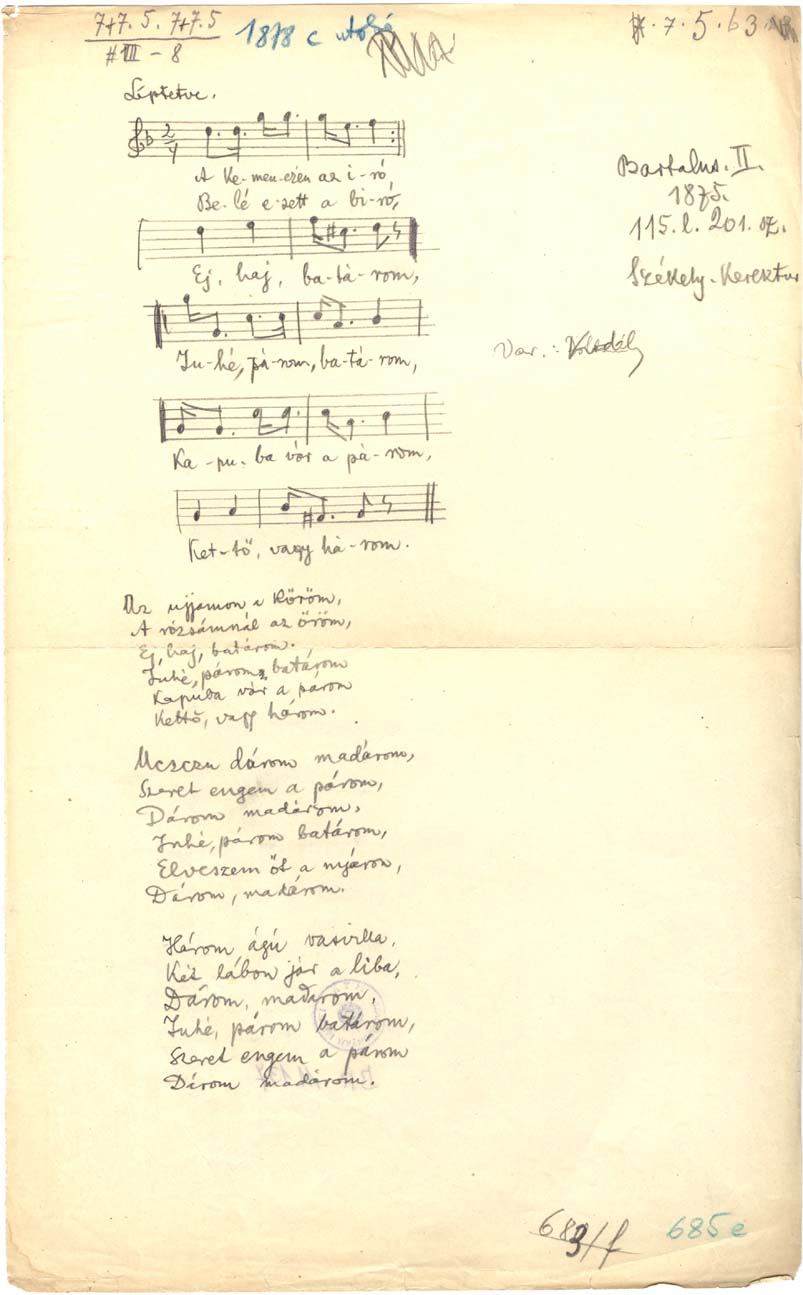 7+7. 5. 7+7. 5
# VII – 8
1878 c utolsó
7 . 5 . 63
Léptetve.
2/4
A Ke-men-czén az i-ró,
Be-lé e-sett a bi-ró,
Bartalus. II.
1875.
115. l. 201. sz.
Székely-Keresztur
Ej, haj, ba-tá-rom,
Ju-hé, pá-rom, ba-tá-rom,
Var. :
Ka-pu-ba vár a pá-rom,
Ket-tő, vagy há-rom.
Az ujjamon a köröm,
A rózsámnál az öröm,
Ej, haj, batárom.
Juhé, párom, batárom
Kapuba vár a párom
Kettő, vagy három.
Uczczu dárom madárom,
Szeret engem a párom,
Dárom madárom,
Juhé, párom batárom,
Elveszem őt a nyáron,
Dárom, madárom.
Három ágú vasvilla,
Két lábon jár a liba,
Dárom, madárom,
Juhé, párom batárom,
Szeret engem a párom
Dárom madárom.
683/f
685 e